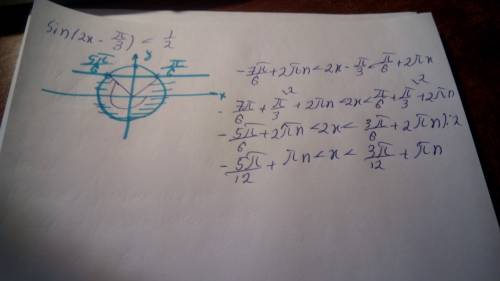 sin(2x - π/3) < 1/2
5π/6 y π/6
x
- 7π/6 + 2πn < 2x - π/3 < π/6 + 2πn
- 7π/6 + π/3 \2 + 2πn < 2x < π/6 + π/3 \2 + 2πn
- 5π/6 + 2πn < 2x < 3π/6 + 2πn |:2
- 5π/12 + πn < x < 3π/12 + πn